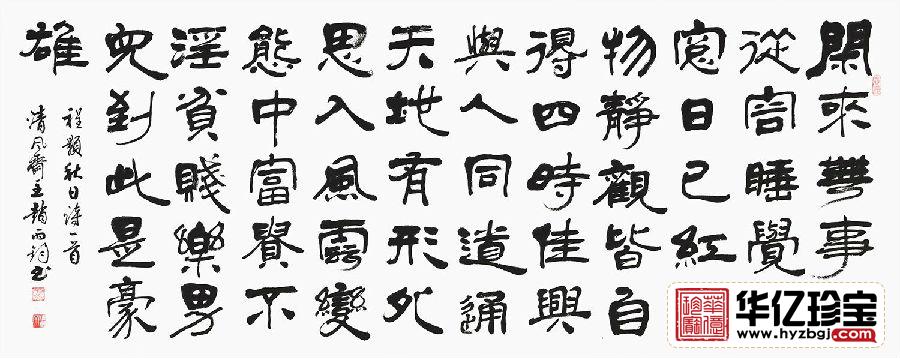 閑來無事
從容睡覺
窗日已紅
物靜觀皆自
得四時佳興
與人同道通
天地有形外
思入風雲變
態中富貴不
淫貧賤樂男
兒到此是豪
雄
程顥秋日詩一首
清風齋主趙西書
華億珍寶
华亿珍宝
www.hyzbgj.com